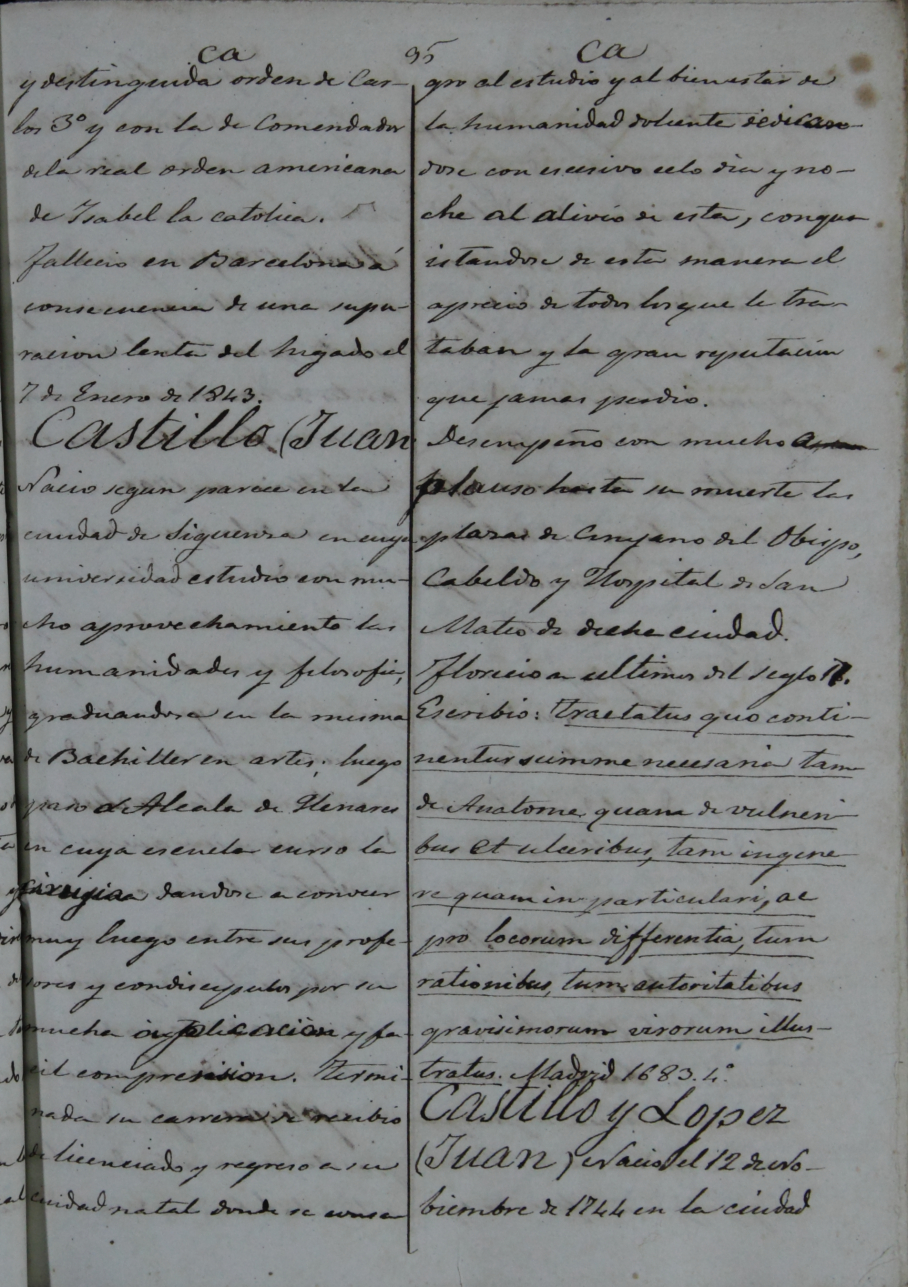 ca
95
ca
y destinguida orden de Car-
los 3º y con la de Comendador
de la real orden americana
de Isabel la catolica.
Fallecio en Barcelona á
consecuencia de una supu-
racion lenta del higado el
7 de Enero de 1843.
Castillo (Juan
Nacio segun parece en la
ciudad de Siguenza en cuya
universidad estudio con mu-
cho aprovechamiento las
humanidades y filosofia,
graduandose en la misma
de Bachiller en artes; luego
paso a Alcala de Henares
en cuya escuela curso la
cirugia dandose a conocer
muy luego entre sus profe-
sores y condiscipulos por su
mucha aplicacion y fa-
cil compresion. Termi-
nada su carrera se recibio
de licenciado y regreso a su
cuidad natal donde se consa
gro al estudio y al bien estar de
la humanidad doliente dedican
dose con escesivo celo dia y no-
che al alivio de esta, conqu
istandose de esta manera el
aprecio de todos los que le tra-
taban y la gran reputacion
que jamas perdio.
Desempeño con mucho a
plauso hasta su muerte las
plazas de Cirujano del Obispo,
Cabeldo y Hospital de San
Mateo de dicha ciudad.
Florecio a ultimos del seglo 17.
Escribio: Tractatus quo conti-
nentur summe necesaria tam
de Anatome quam de vulneri
bus et ulceribus, tam in gene
re quam in particulari, ac
pro locorum differentia, tum
rationibus, tum autoritatibus
gravisimorum virorum illus-
tratus. Madrid 1683. 4º
Castillo y Lopez
(Juan) Nacio el 12 de No-
biembre de 1744 en la ciudad